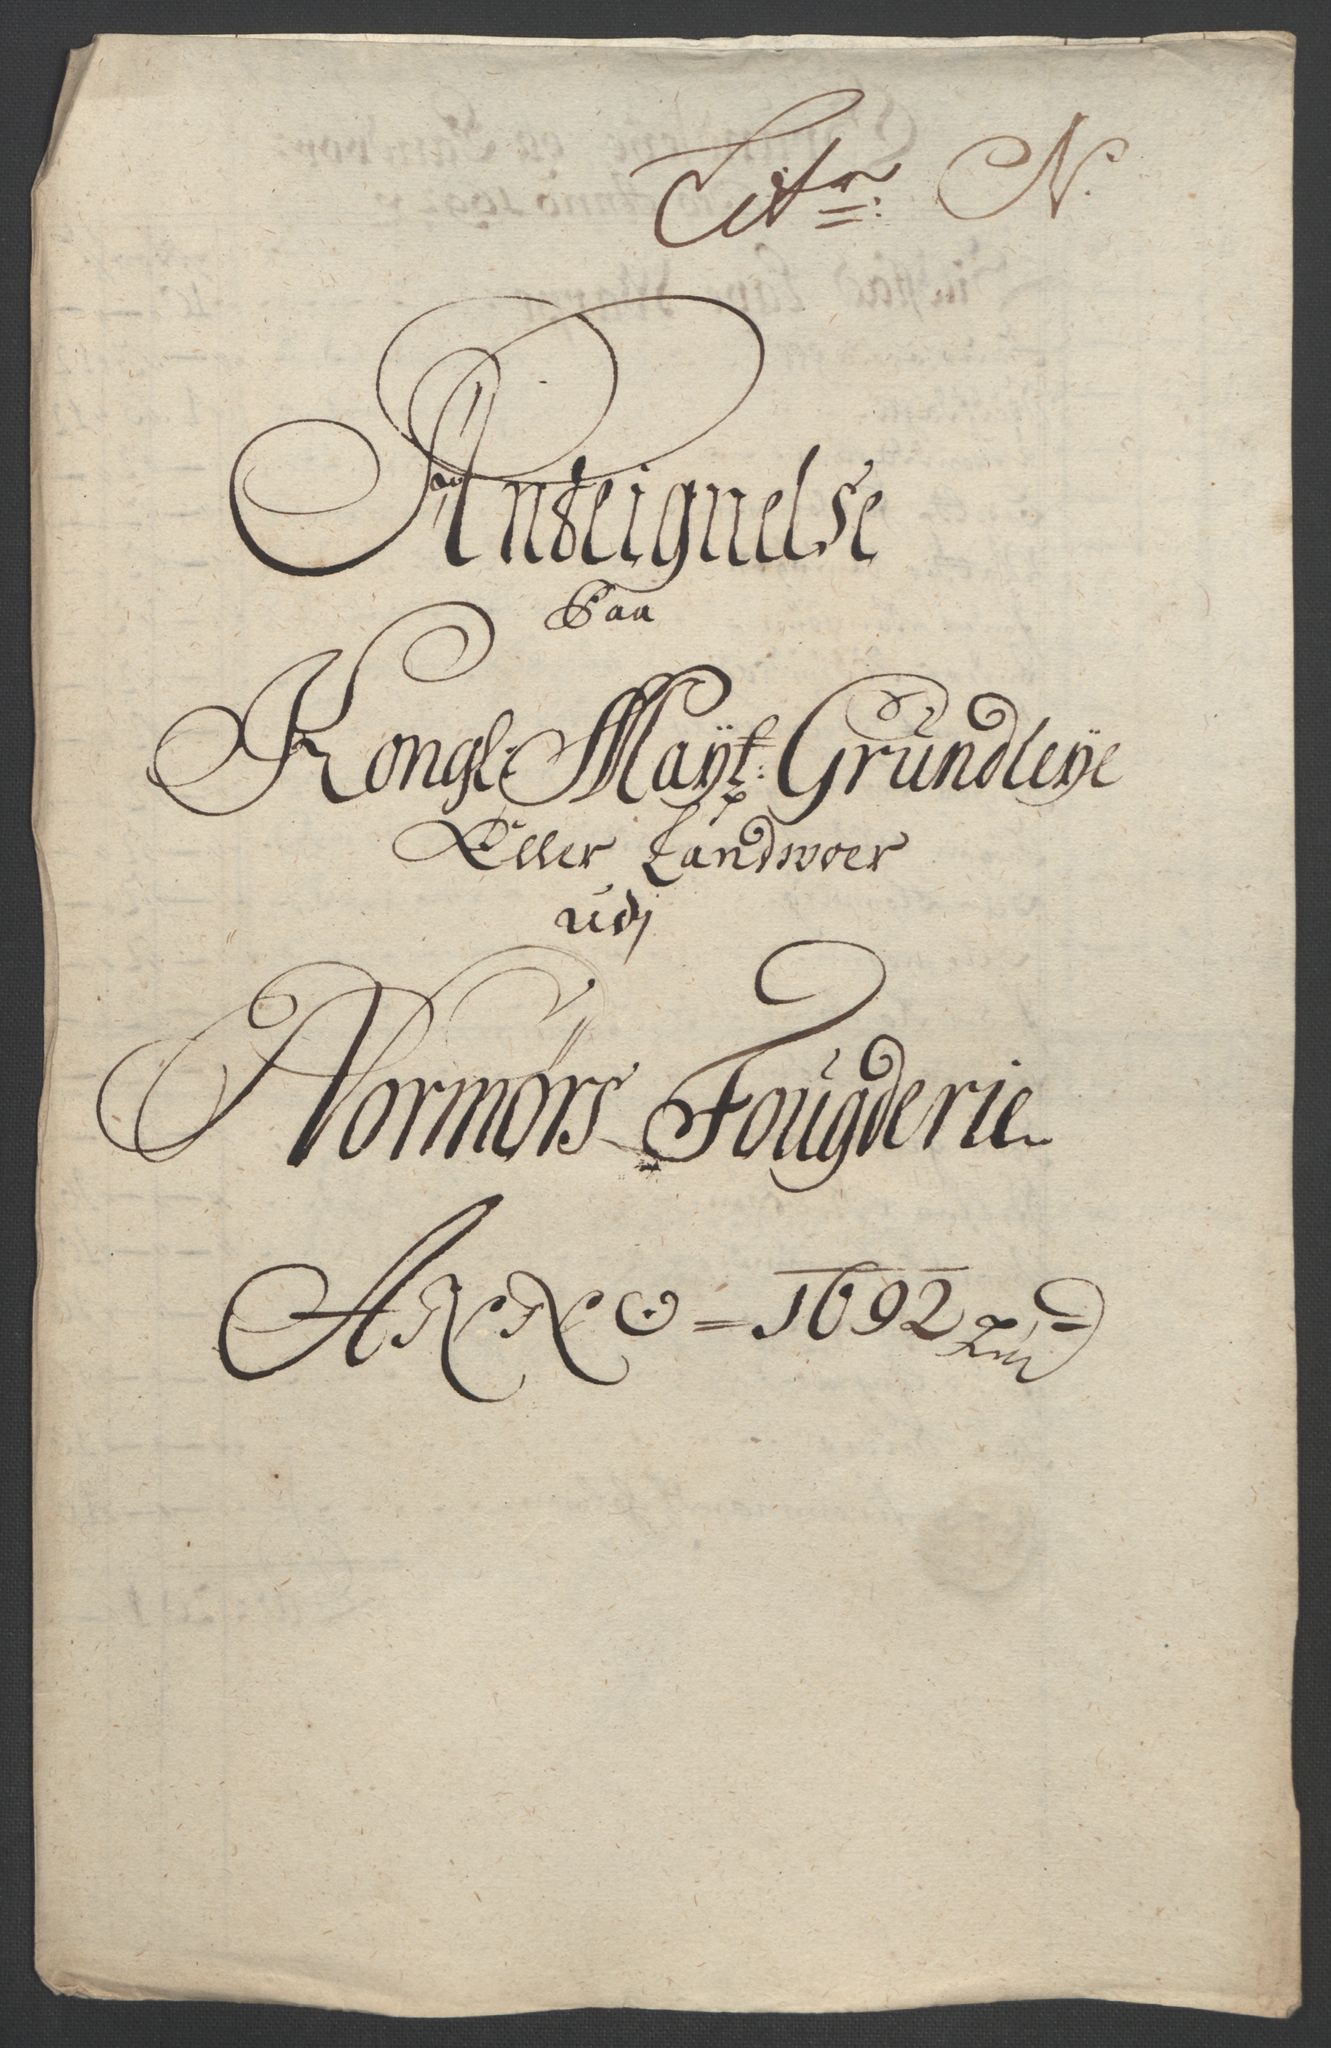 Litr: N.
Anteignelse
Paa
Kongl: Mayt: Grundleÿe
Eller Landwoer
udj
Normørs Fougderie
ANNO = 1692